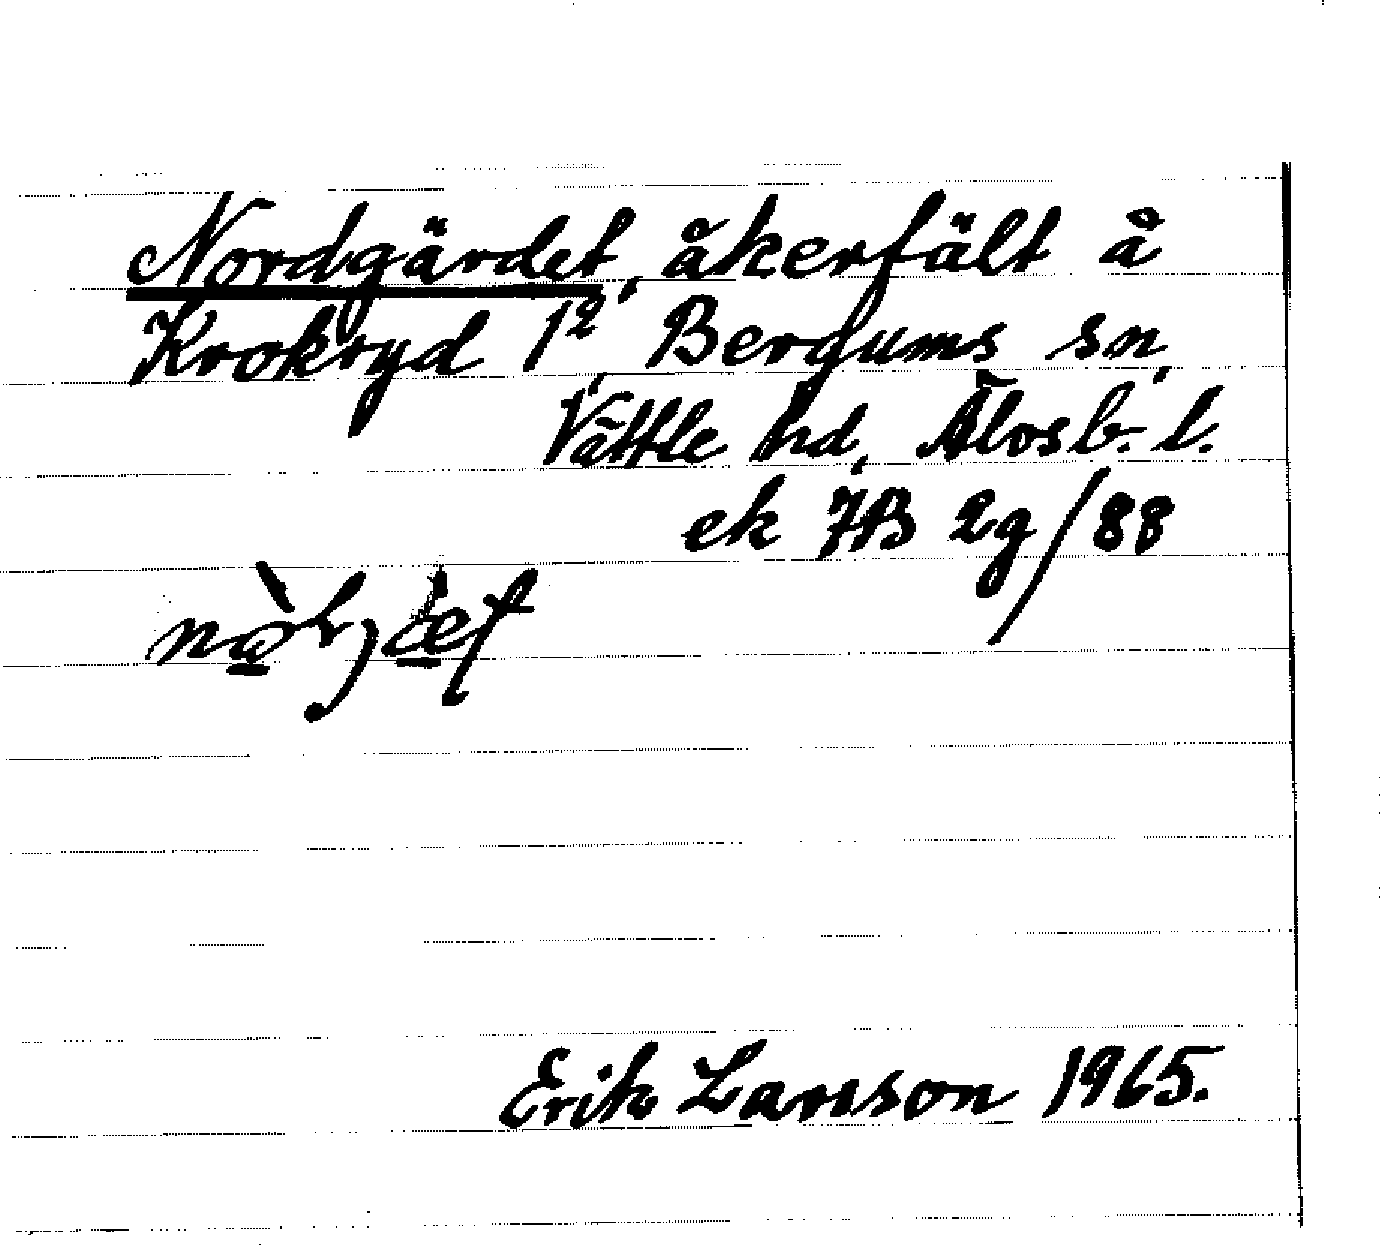 Nordgärdet, åkerfält å
Krokryd 1², Bergums sn,
Vättle hd, Älvsb. l.
ek 7B 2g/88
Erik Larsson 1965.